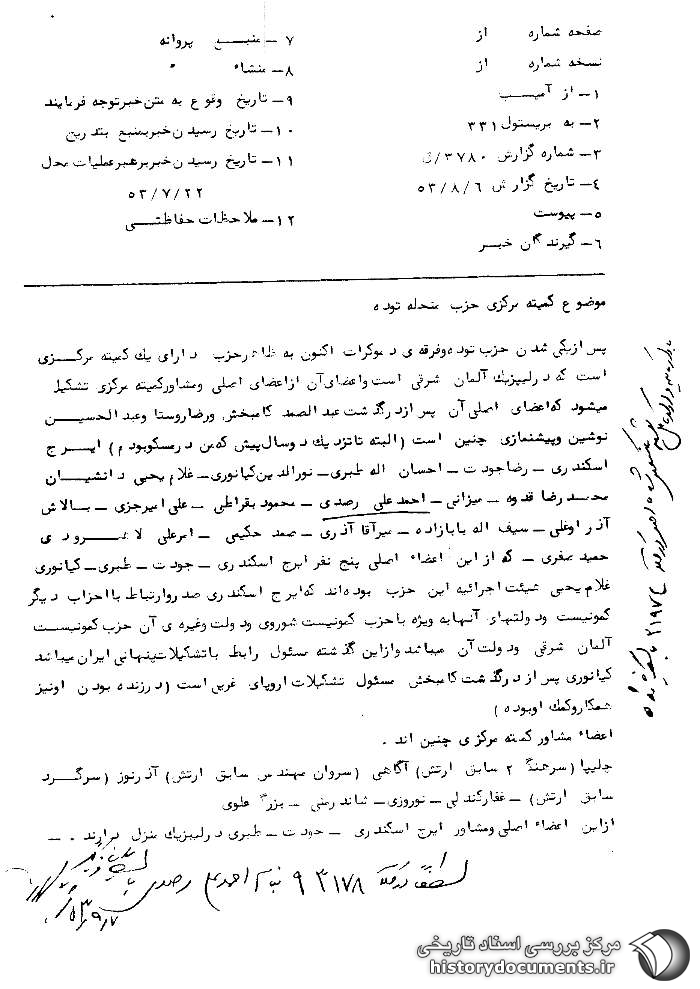 صفحه شماره از
نسخه شماره از
۱ـ از آمیب
۲ـ به بریستول ۳۳۱
۳ـ شماره گزارش ۳۷۸۰/ق
۴ـ تاریخ گزارش ۵۳/۸/۶
۵ـ پیوست
۶ـ گیرندگان خبر
۷ـ منبع پروانه
۸ـ منشاء "
۹ـ تاریخ وقوع به متن خبر توجه فرمایند
۱۰ـ تاریخ رسیدن خبر بمنبع بتدریج
۱۱ـ تاریخ رسیدن خبر برهبر عملیات محل
۵۳/۷/۲۲
۱۲ـ ملاحظات حفاظتی
موضوع کمیته مرکزی حزب منحله توده
پس از یکی شدن حزب توده و فرقه ی دموکرات اکنون به ظاهر حزب دارای یک کمیته مرکزی
است که در لیپزیک آلمان شرقی است و اعضای آن از اعضای اصلی و مشاور کمیته مرکزی تشکیل
میشود که اعضای اصلی آن پس از درگذشت عبدالصمد کامبخش و رضا روستا و عبدالحسین
نوشین و پیشنمازی چنین است (البته تا نزدیک دو سال پیش که من در مسکو بودم) ایرج
اسکندری ـ رضا جودت ـ احسان اله طبری ـ نورالدین کیانوری ـ غلام یحیی دانشیان
محمد رضا قدوه ـ میزانی ـ احمد علی رصدی ـ محمود بقراطی ـ علی امیرخیزی ـ بالاش
آذر اوغلی ـ سیف اله بابازاده ـ میرآقا آذری ـ صمد حکیمی ـ امیرعلی لاهرودی
حمید صفری ـ که از این اعضاء اصلی پنج نفر ایرج اسکندری ـ جودت ـ طبری ـ کیانوری
غلام یحیی هیئت اجرائیه این حزب بوده اند که ایرج اسکندری صدر و ارتباط با احزاب دیگر
کمونیست و دولتهای آنها به ویژه با حزب کمونیست شوروی و دولت و غیره ی آن حزب کمونیست
آلمان شرقی و دولت آن میباشد و از این گذشته مسئول رابط با تشکیلات پنهانی ایران میباشد
کیانوری پس از درگذشت کامبخش مسئول تشکیلات اروپای غربی است (در زنده بودن او نیز
همکار و کمک او بوده)
اعضاء مشاور کمیته مرکزی چنین اند .
چلیپا (سرهنگ ۲ سابق ارتش) آگاهی (سروان مهندس سابق ارتش) آذرنور (سرگرد
سابق ارتش) ـ غفار کندلی ـ نوروزی ـ شاندرمنی ـ بزرگ علوی
از این اعضاء اصلی و مشاور ایرج اسکندری ـ جودت ـ طبری در لیپزیک منزل دارند . ـ
لطفاً در کلاسه ۹۳۱۷۸ بنام احمد علی رصدی
مرکز بررسی اسناد تاریخی
historydocuments.ir